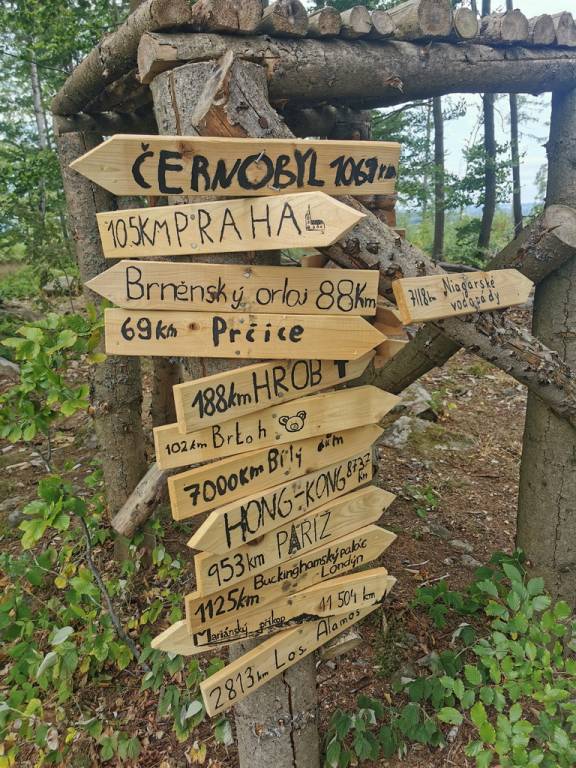 ČERNOBYL 1067 km
105KM PRAHA
Brněnský orloj 88km
7118km Niagarské
vodopády
69km Prčice
188km HROB
102km Brloh
7000km Bílý dům
HONG-KONG 8732
km
953km PAŘÍŽ
1125km Buckinghamský palác
Londýn
Mariánský příkop 11 504 km
2813km Los Alamos